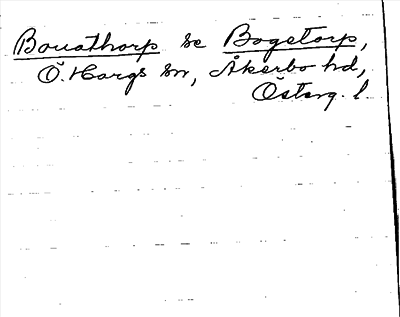 Bouathorp se Bogstorp,
Ö. Hargs sn, Åkerbo hd,
Österg. l.